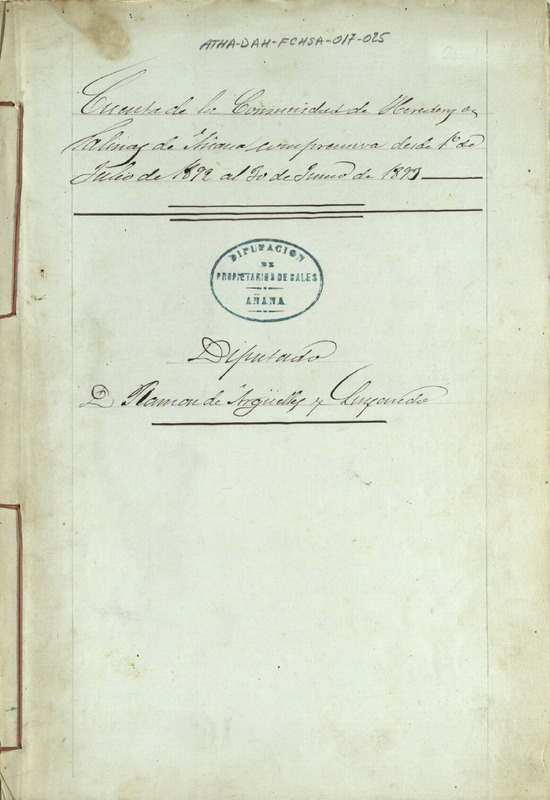 ATHA-DAH-FCHSA-017-025
Cuenta de la Comunidad de Herederos en
Salinas de Añana comprensiva desde 1º de
Julio de 1892 al 30 de Junio de 1893
DIPUTACION
DE
PROPIETARIOS DE SALES
AÑANA
Diputado
D. Ramon de Arguelles y